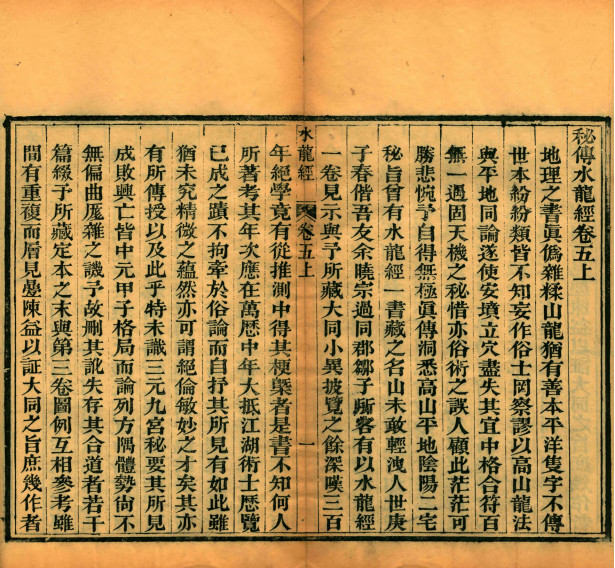 秘傳水龍經卷五上
地理之書眞僞雜糅山龍猶有善本平洋隻字不傳
世本紛紛類皆不知妄作俗士罔察謬以高山龍法
與平地同論遂使安墳立穴盡失其宜中格合符百
無一遇固天機之秘惜亦俗術之誤人顧此茫茫可
勝悲惋予自得無極眞傳洞悉高山平地陰陽二宅
秘旨曾有水龍經一書藏之名山未敢輕洩人世庚
子春偕吾友余曉宗過同郡鄒子所客有以水龍經
一卷見示與予所藏大同小異披覽之餘深嘆三百
水龍經 卷五上 一
年絕學竟有從推測中得其梗槩者是書不知何人
所著考其年次應在萬歷中年大抵江湖術士歷覽
已成之蹟不拘牽於俗論而自抒其所見有如此雖
猶未究精微之蘊然亦可謂絕倫敏妙之才矣其亦
有所傳授以及此乎特未識三元九宮秘要其所見
成敗興亡皆中元甲子格局而論列方隅體勢尙不
無偏曲厖雜之譏予故删其訛失存其合道者若干
篇綴予所藏定本之末與第三卷圖例互相參考雖
間有重複而層見疊陳益以証大同之旨庶幾作者